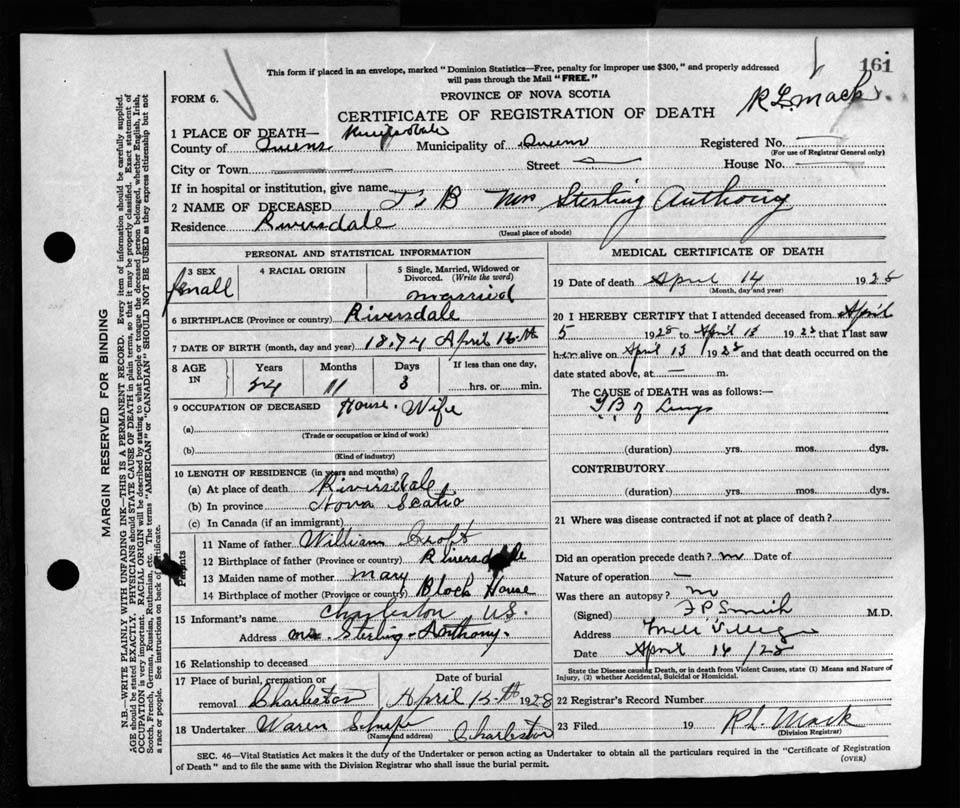 161
This form if placed in an envelope, marked "Dominion Statistics—Free, penalty for improper use $300," and properly addressed
will pass through the Mail "FREE."
FORM 6.
PROVINCE OF NOVA SCOTIA
R L. Mack
CERTIFICATE OF REGISTRATION OF DEATH
1 PLACE OF DEATH—
County of Queens Municipality of Queens Registered No.
(For use of Registrar General only)
City or Town Street House No.
If in hospital or institution, give name
2 NAME OF DECEASED T. B Mrs Sterling Anthony
Residence Riversdale
(Usual place of abode)
PERSONAL AND STATISTICAL INFORMATION
3 SEX 4 RACIAL ORIGIN 5 Single, Married, Widowed or
Divorced. (Write the word)
femall married
6 BIRTHPLACE (Province or country) Riversdale
7 DATE OF BIRTH (month, day and year) April
8 AGE IN Years Months Days If less than one day,
11 3 hrs. or min.
9 OCCUPATION OF DECEASED House Wife
(a)
(Trade or occupation or kind of work)
(b)
(Kind of industry)
10 LENGTH OF RESIDENCE (in years and months)
(a) At place of death Riversdale
(b) In province Nova Scatio
(c) In Canada (if an immigrant)
Parents
11 Name of father William Croft
12 Birthplace of father (Province or country) Riversdale
13 Maiden name of mother Mary
14 Birthplace of mother (Province or country) Block House
15 Informant's name Charleston
Address Sterling Anthony.
16 Relationship to deceased
17 Place of burial, cremation or Date of burial
removal Charleston April 1928
18 Undertaker Waren Charleston
(Name and address)
MEDICAL CERTIFICATE OF DEATH
19 Date of death April 14 1928
(Month, day and year)
20 I HEREBY CERTIFY that I attended deceased from April
5 1928 to April 13 1928 that I last saw
her alive on April 13 1928 and that death occurred on the
date stated above, at — m.
The CAUSE OF DEATH was as follows:—
T B of Lungs
(duration) yrs. mos. dys.
CONTRIBUTORY
(duration) yrs. mos. dys.
21 Where was disease contracted if not at place of death?
Did an operation precede death? no Date of
Nature of operation —
Was there an autopsy? no
(Signed) F P Smith M.D.
Address Mill Village
Date April 16/28
State the Disease causing Death, or in death from Violent Causes, state (1) Means and Nature of
Injury, (2) whether Accidental, Suicidal or Homicidal.
22 Registrar's Record Number
23 Filed 19 R L. Mack
(Division Registrar)
SEC. 46—Vital Statistics Act makes it the duty of the Undertaker or person acting as Undertaker to obtain all the particulars required in the "Certificate of Registration
of Death" and to file the same with the Division Registrar who shall issue the burial permit.
(OVER)
MARGIN RESERVED FOR BINDING
N.B.—WRITE PLAINLY WITH UNFADING INK—THIS IS A PERMANENT RECORD. Every item of information should be carefully supplied.
AGE should be stated EXACTLY. PHYSICIANS should STATE CAUSE OF DEATH in plain terms, so that it may be properly classified. Exact statement of
OCCUPATION is very important. RACIAL ORIGIN will be described by stating to what people or tongue the deceased person belonged, whether English, Irish,
Scotch, French, German, Russian, Ruthenian, etc. The terms "AMERICAN" or "CANADIAN" SHOULD NOT BE USED as they express citizenship but not
a race or people. See instructions on back of certificate.